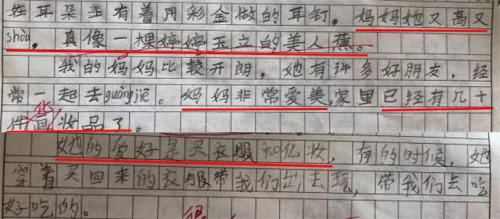 在耳朵上有着用彩金做的耳钉。妈妈她又高又
shòu。真像一棵婷婷玉立的美人蕉。
我的妈妈比较开朗。她有许多好朋友，经
常一起去guàng jiē。妈妈非常爱美，家里已经有几十
件化妆品了。
她的爱好是买衣服和化妆，有的时候，她
穿着买回来的衣服带我们出去玩，带我们去吃
好吃的。